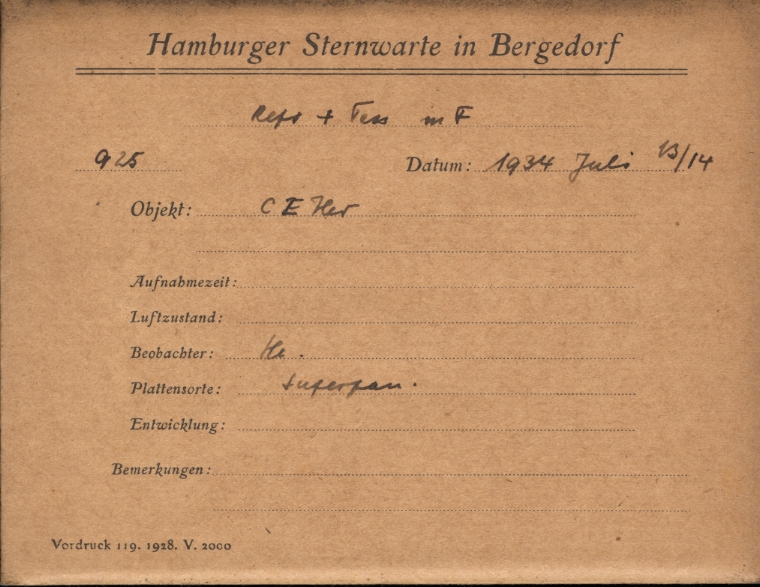 Hamburger Sternwarte in Bergedorf
Refr + Tess m F
925 Datum: 1934 Juli 13/14
Objekt: C E Her
Aufnahmezeit:
Luftzustand:
Beobachter: He.
Plattensorte: Superpan.
Entwicklung:
Bemerkungen:
Vordruck 119. 1928. V. 2000